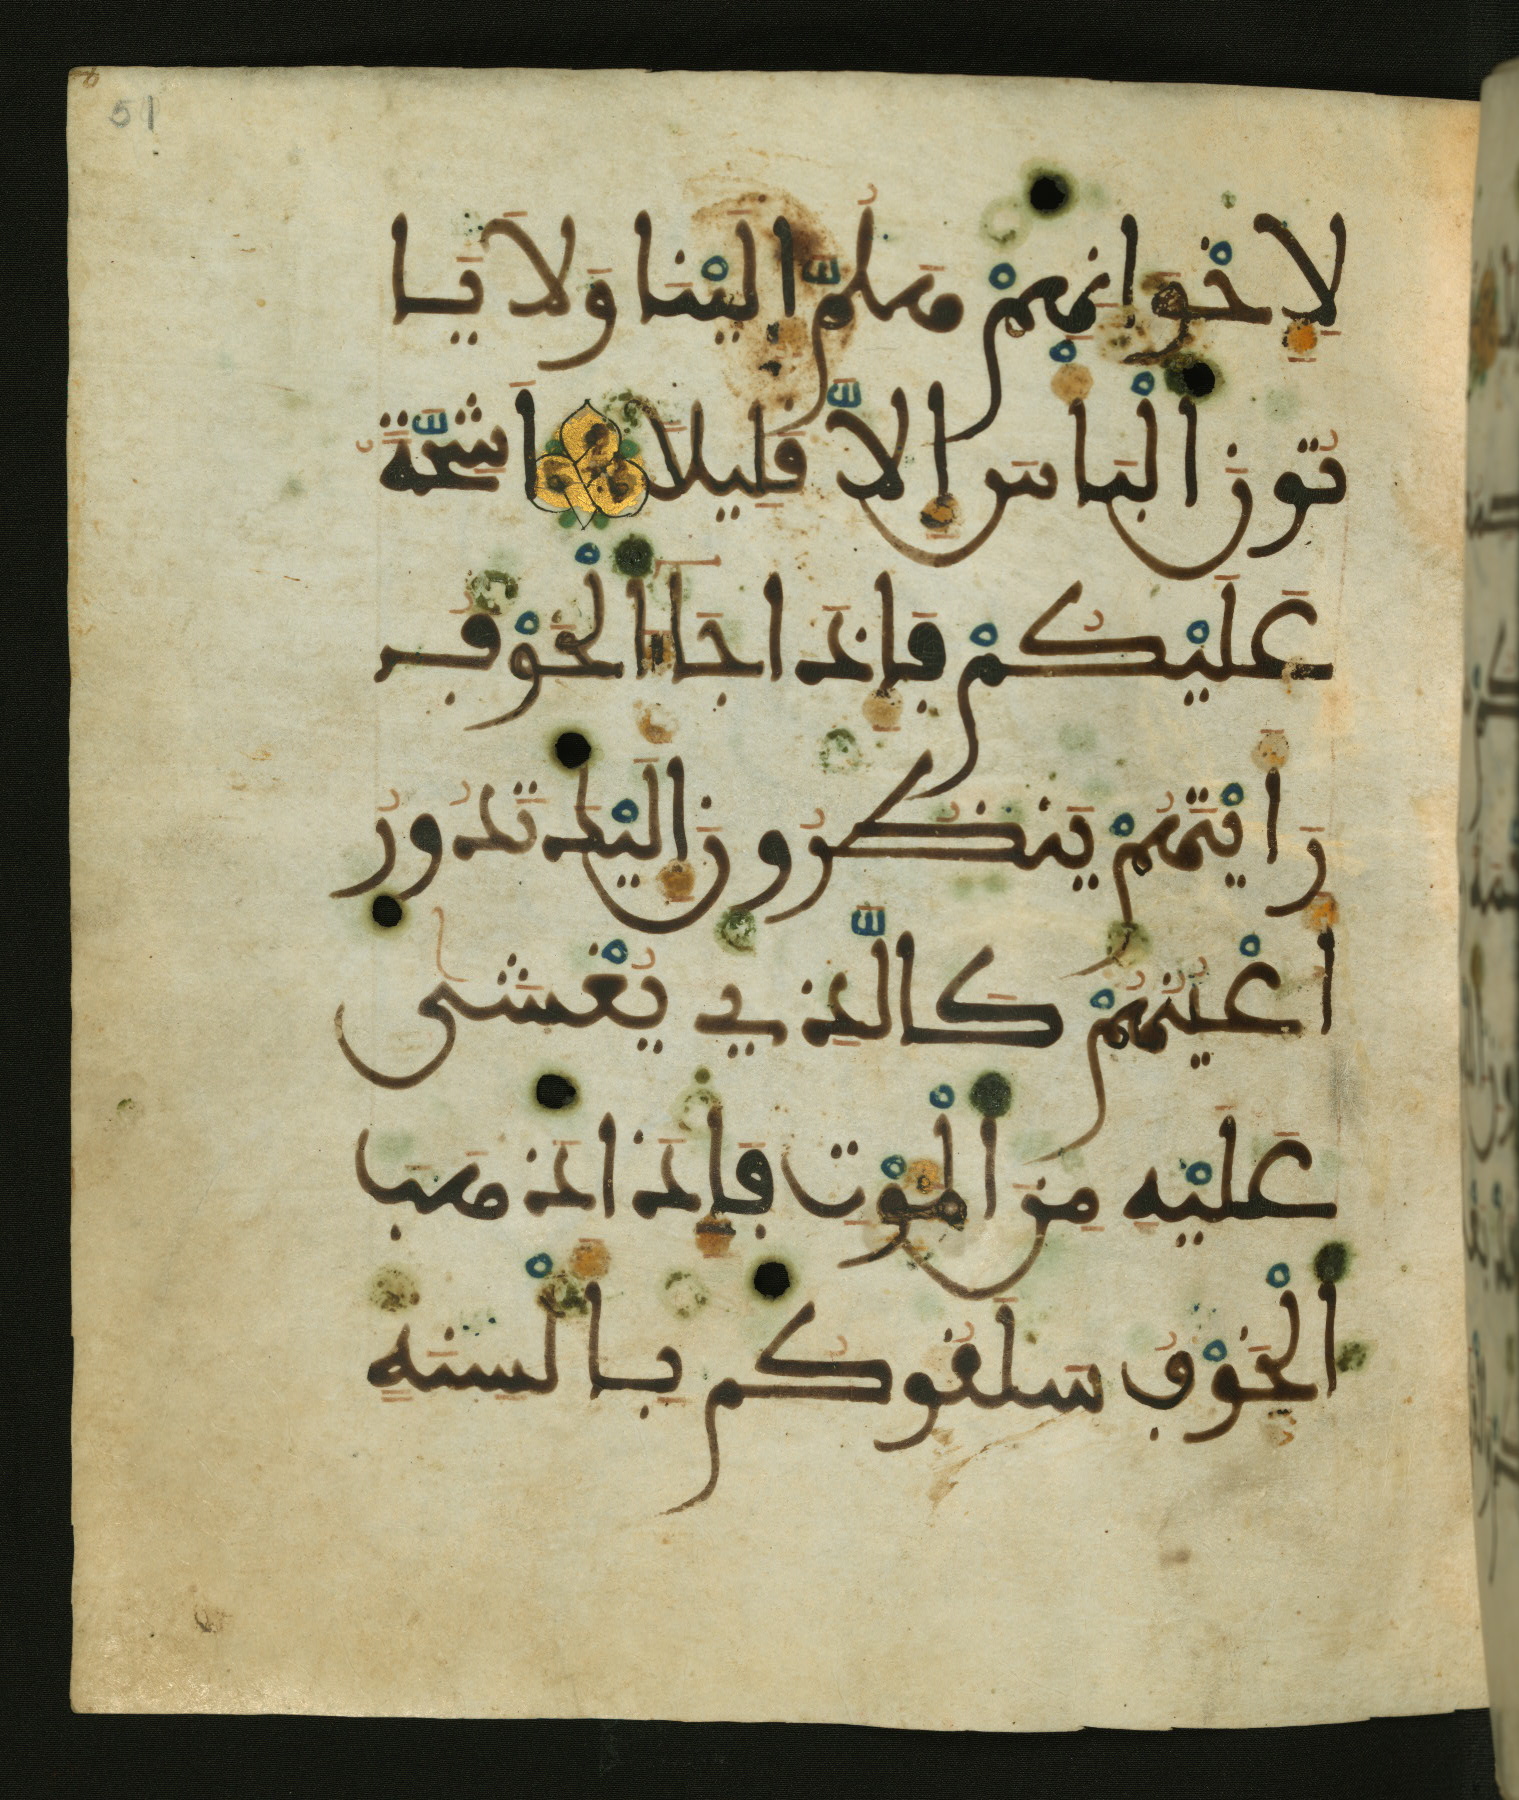 51
لِإِخْوَانِهِمْ هَلُمَّ إِلَيْنَا وَلَا يَا
تُونَ الْبَأْسَ إِلَّا قَلِيلًا أَشِحَّةً
عَلَيْكُمْ فَإِذَا جَاءَ الْخَوْفُ
رَأَيْتَهُمْ يَنظُرُونَ إِلَيْكَ تَدُورُ
أَعْيُنُهُمْ كَالَّذِي يُغْشَى
عَلَيْهِ مِنَ الْمَوْتِ فَإِذَا ذَهَبَ
الْخَوْفُ سَلَقُوكُم بِأَلْسِنَةٍ